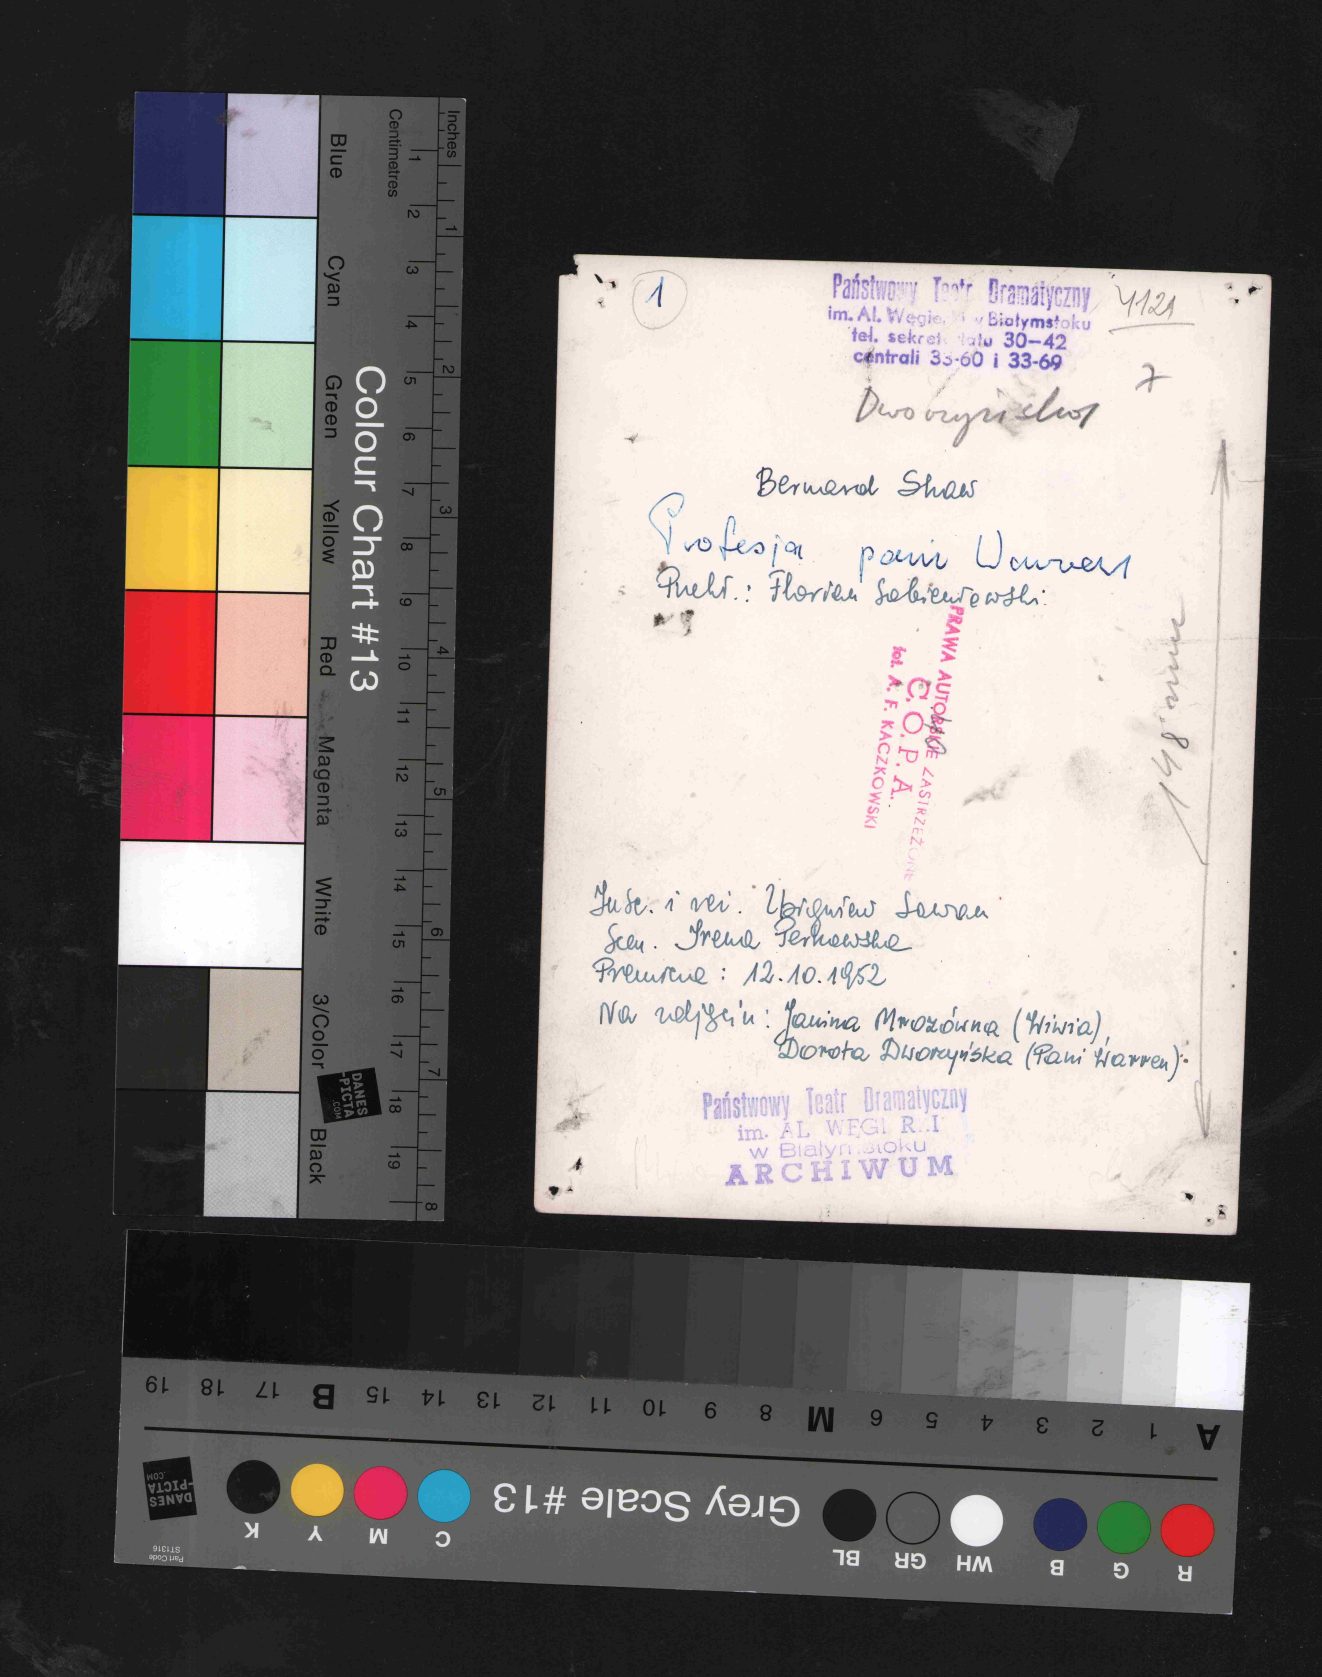 Inches
Centimetres
1 2 3 4 5 6 7 8
1 2 3 4 5 6 7 8 9 10 11 12 13 14 15 16 17 18 19
Colour Chart #13
Blue
Cyan
Green
Yellow
Red
Magenta
White
3/Color
Black
DANES
-PICTA
.COM
1
Państwowy Teatr Dramatyczny
im. Al. Węgie i w Białymstoku
tel. sekret iatu 30-42
centrali 33-60 i 33-69
4121
7
Bernard Shaw
Profesja pani Warren
Przekł.: Florian Sobieniowski
PRAWA AUTORSKIE ZASTRZEŻONE
C.O.P.A.
fot. A. F. KACZKOWSKI
148 mm
Insc. i reż. Zbigniew Sawan
Scen. Irena Perkowska
Premiera: 12.10.1952
Na zdjęciu: Janina Mrozówna (Wiwia),
Dorota Dworzyńska (Pani Warren).
Państwowy Teatr Dramatyczny
im. AL WĘGI R I
w Białymstoku
ARCHIWUM
A 1 2 3 4 5 6 M 8 9 10 11 12 13 14 15 B 17 18 19
Grey Scale #13
R G B WH GR BL C M Y K
DANES
-PICTA
.COM
Part Code
ST1316